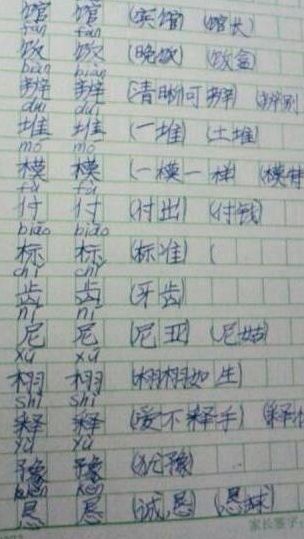 馆 馆 (宾馆) (馆长)
fàn fàn
饭 饭 (晚饭) (饭盒)
biàn biàn
辨 辨 (清晰可辨) (辨别
duī duī
堆 堆 (一堆) (土堆)
mó mó
模 模 (一模一样) (模样
fù fù
付 付 (付出) (付钱)
biāo biāo
标 标 (标准) (
chǐ chǐ
齿 齿 (牙齿)
ní ní
尼 尼 (尼亚) (尼姑)
xǔ xǔ
栩 栩 (栩栩如生
shì shì
释 释 (爱不释手) (释
yù yù
豫 豫 (犹豫)
kěn kěn
恳 恳 (诚恳) (恳
家长签字